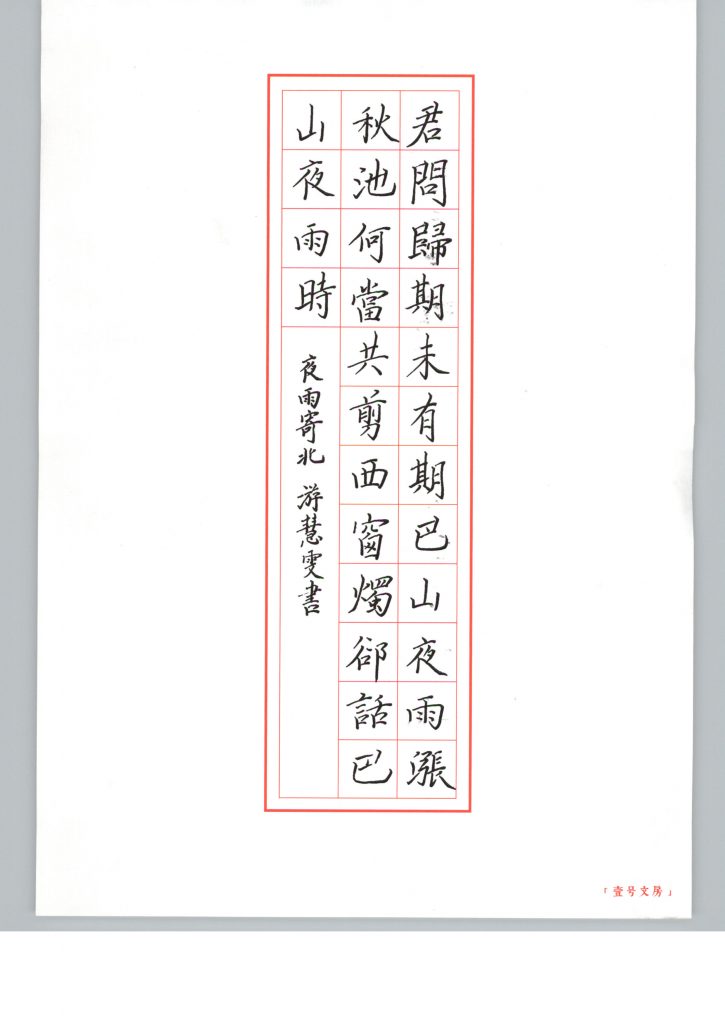 君問歸期未有期巴山夜雨漲
秋池何當共剪西窗燭卻話巴
山夜雨時
夜雨寄北 游慧雯書
「壹号文房」